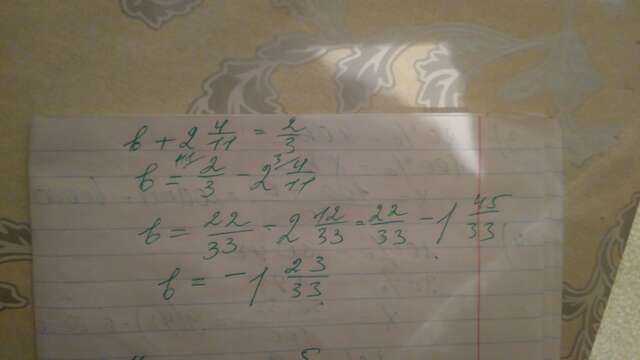 b + 2 4/11 = 2/3
b = 11/ 2/3 - 2 3/ 4/11
b = 22/33 - 2 12/33 = 22/33 - 1 45/33
b = -1 23/33